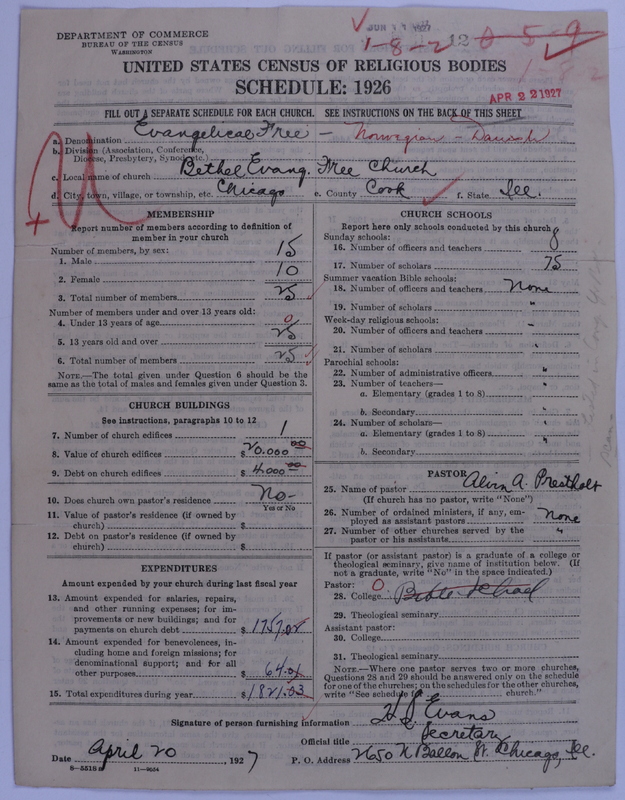 DEPARTMENT OF COMMERCE
BUREAU OF THE CENSUS
WASHINGTON
JUN 1927
1-8-2 12 0 5 9
1 8 2
UNITED STATES CENSUS OF RELIGIOUS BODIES
SCHEDULE: 1926
APR 22 1927
FILL OUT A SEPARATE SCHEDULE FOR EACH CHURCH. SEE INSTRUCTIONS ON THE BACK OF THIS SHEET
a. Denomination Evangelical Free - Norwegian - Danish
b. Division (Association, Conference, Diocese, Presbytery, Synod, etc.)
c. Local name of church Bethel Evang. Free Church
d. City, town, village, or township, etc. Chicago e. County Cook f. State Ill.
MEMBERSHIP
Report number of members according to definition of member in your church
Number of members, by sex:
1. Male 15
2. Female 10
3. Total number of members 25
Number of members under and over 13 years old:
4. Under 13 years of age 0
5. 13 years old and over 25
6. Total number of members 25
NOTE.—The total given under Question 6 should be the same as the total of males and females given under Question 3.
CHURCH BUILDINGS
See instructions, paragraphs 10 to 12
7. Number of church edifices 1
8. Value of church edifices $20.000 00
9. Debt on church edifices $4.000 00
10. Does church own pastor's residence No-
Yes or No
11. Value of pastor's residence (if owned by church) $
12. Debt on pastor's residence (if owned by church) $
EXPENDITURES
Amount expended by your church during last fiscal year
13. Amount expended for salaries, repairs, and other running expenses; for improvements or new buildings; and for payments on church debt $ 1757.02
14. Amount expended for benevolences, including home and foreign missions; for denominational support; and for all other purposes $ 64.01
15. Total expenditures during year $ 1821.03
CHURCH SCHOOLS
Report here only schools conducted by this church
Sunday schools:
16. Number of officers and teachers 8
17. Number of scholars 75
Summer vacation Bible schools:
18. Number of officers and teachers None
19. Number of scholars "
Week-day religious schools:
20. Number of officers and teachers "
21. Number of scholars "
Parochial schools:
22. Number of administrative officers "
23. Number of teachers—
a. Elementary (grades 1 to 8) "
b. Secondary "
24. Number of scholars—
a. Elementary (grades 1 to 8) "
b. Secondary
PASTOR
25. Name of pastor Alvin A. Prestholt
(If church has no pastor, write "None")
26. Number of ordained ministers, if any, employed as assistant pastors None
27. Number of other churches served by the pastor or his assistants "
If pastor (or assistant pastor) is a graduate of a college or theological seminary, give name of institution below. (If not a graduate, write "No" in the space indicated.)
Pastor: 0
28. College Bible School
29. Theological seminary
Assistant pastor:
30. College
31. Theological seminary
NOTE.—Where one pastor serves two or more churches, Questions 28 and 29 should be answered only on the schedule for one of the churches; on the schedules for the other churches, write "See schedule church."
Signature of person furnishing information H J Evans
Official title Secretary
Date April 20, 1927 P. O. Address 2650 N Ballou St. Chicago, Ill.
8—5518 11—9054